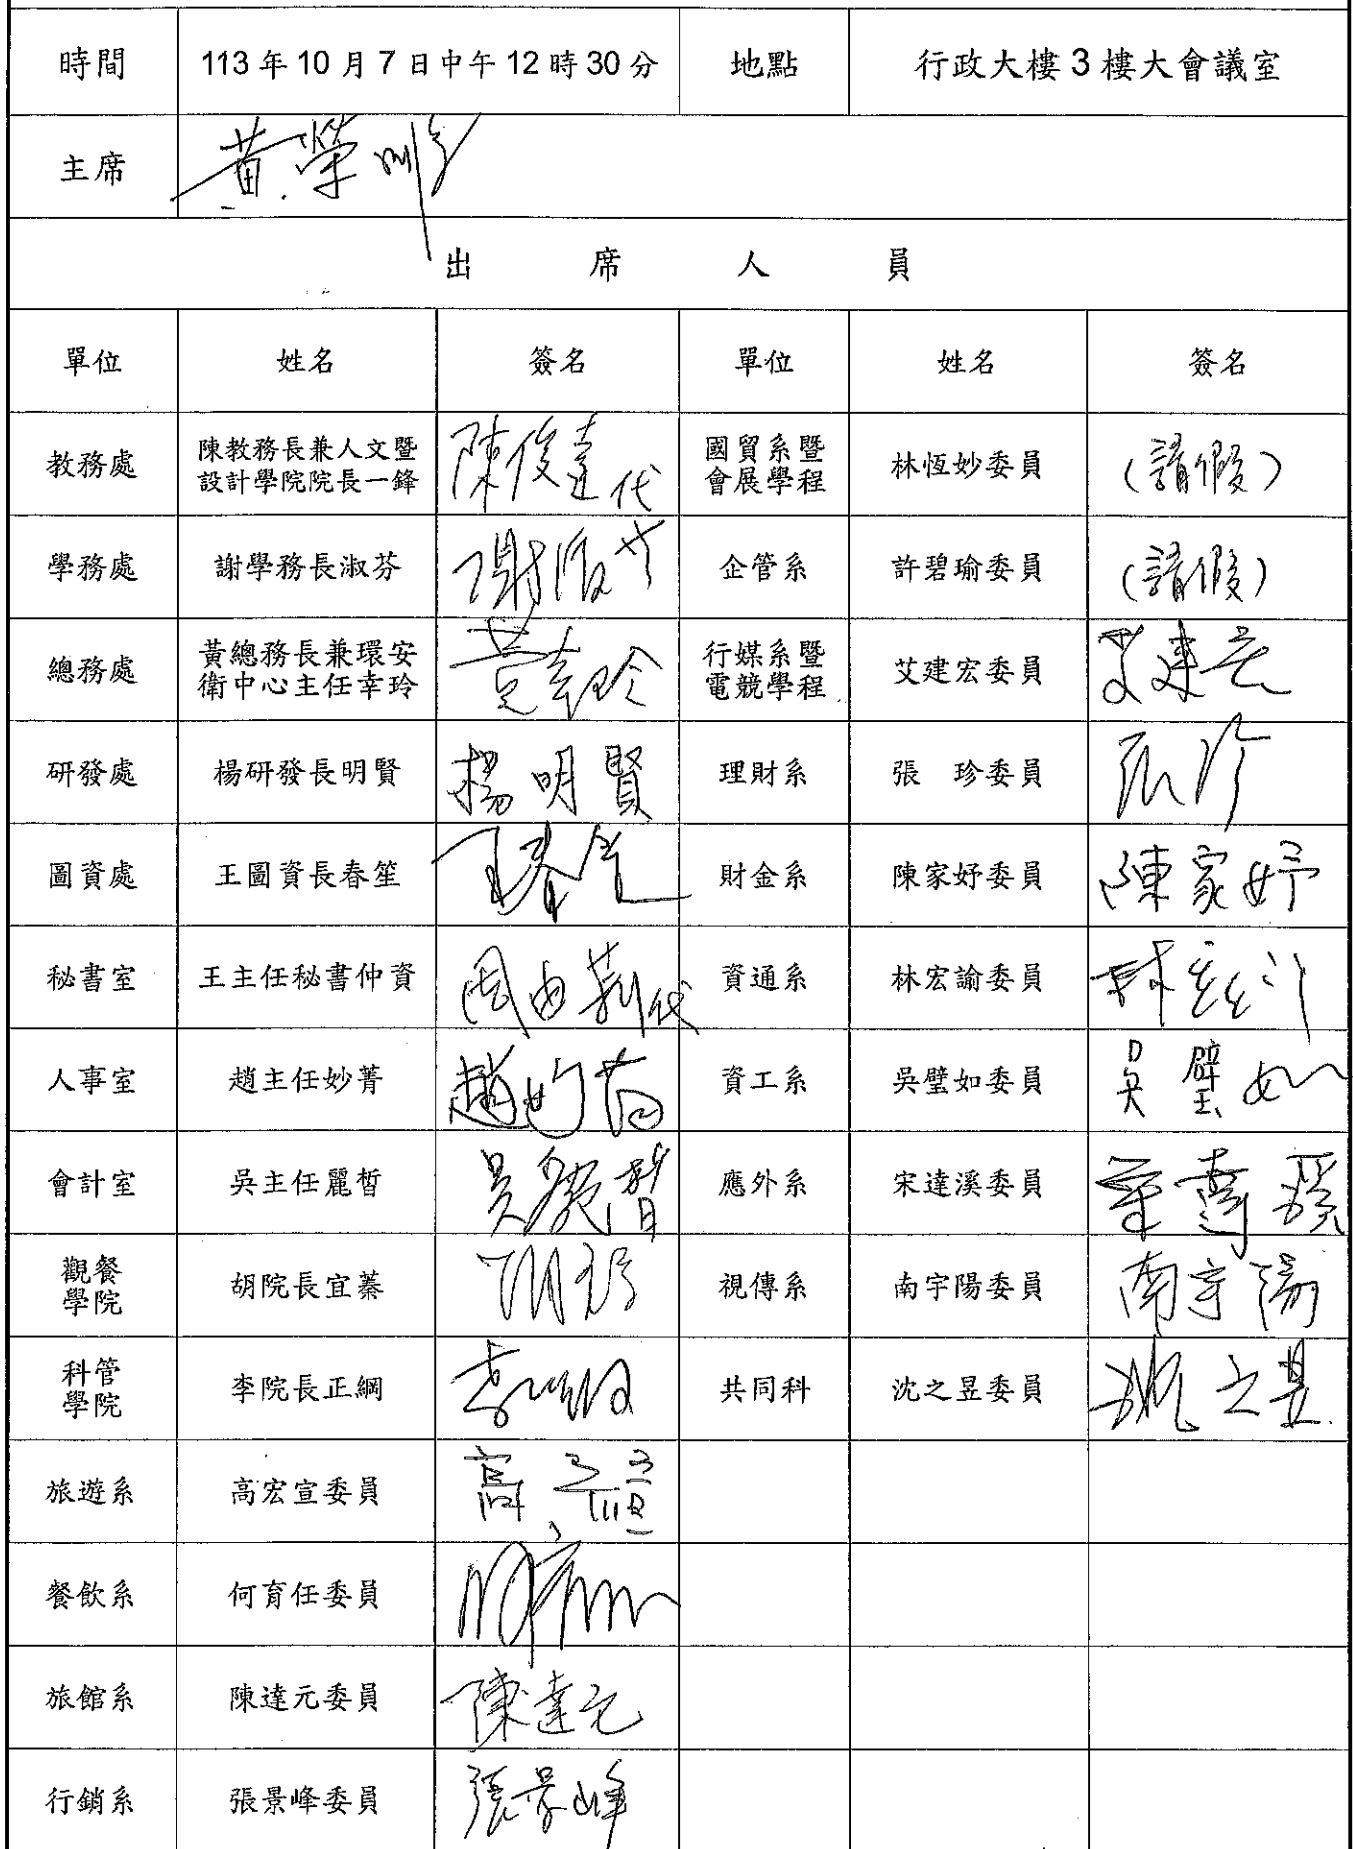 時間 113年10月7日中午12時30分 地點 行政大樓3樓大會議室
主席 黃榮鵬
出席人員
單位 姓名 簽名 單位 姓名 簽名
教務處 陳教務長兼人文暨 設計學院院長一鋒 陳俊達代 國貿系暨 會展學程 林恆妙委員 (請假)
學務處 謝學務長淑芬 謝淑芬 企管系 許碧瑜委員 (請假)
總務處 黃總務長兼環安 衛中心主任幸玲 黃幸玲 行媒系暨 電競學程 艾建宏委員 艾建宏
研發處 楊研發長明賢 楊明賢 理財系 張 珍委員 張珍
圖資處 王圖資長春笙 王春笙 財金系 陳家妤委員 陳家妤
秘書室 王主任秘書仲資 代 資通系 林宏諭委員 林宏諭
人事室 趙主任妙菁 趙妙菁 資工系 吳璧如委員 吳璧如
會計室 吳主任麗皙 吳麗皙 應外系 宋達溪委員 宋達溪
觀餐 學院 胡院長宜蓁 視傳系 南宇陽委員 南宇陽
科管 學院 李院長正綱 李正綱 共同科 沈之昱委員 沈之昱
旅遊系 高宏宣委員 高宏宣
餐飲系 何育任委員
旅館系 陳達元委員 陳達元
行銷系 張景峰委員 張景峰